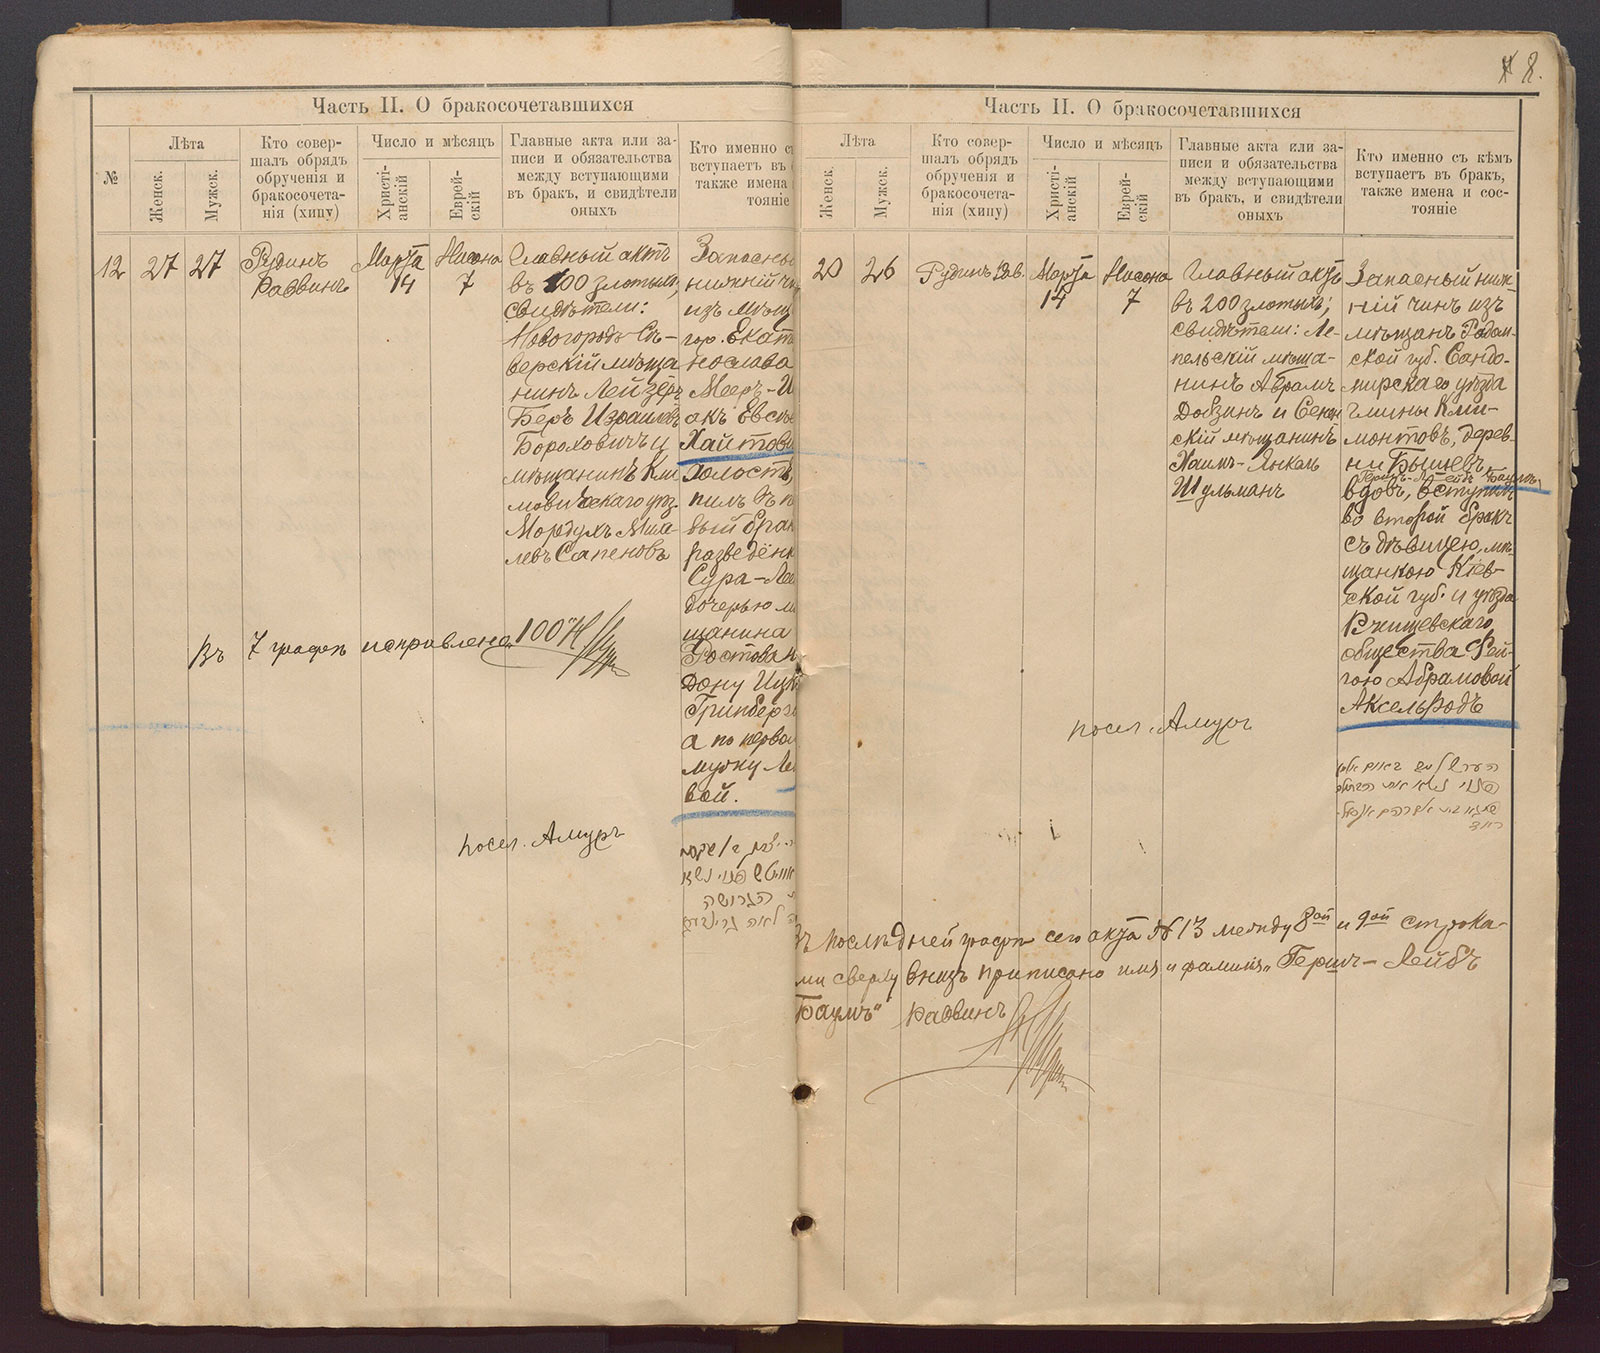 Часть II. О бракосочетавшихся
№
Лѣта
Женск.
Мужск.
Кто совер-
шалъ обрядъ
обрученія и
бракосочета-
нія (хипу)
Число и мѣсяцъ
Христі-
анскій
Еврей-
скій
Главные акта или за-
писи и обязательства
между вступающими
въ бракъ, и свидѣтели
оныхъ
Кто именно съ
вступаетъ въ
также имена
тояніе
12
27
27
Рудинъ
Раввинъ
Марта
14
Нисона
7
Главный актъ
въ 100 злотыхъ,
свидѣтели:
Новогородъ Сѣ-
верскій мѣща
нинъ Лейзеръ
Беръ Израилевъ
Бороховичъ и
мѣщанинъ Кли
мовическаго уѣз.
Мордухъ
левъ Сапеновъ
Запасны
нижній чи
изъ мѣщ
гор. Екат
нослава
Мееръ-И
акъ Евсѣе
Хайтови
холостъ,
пилъ въ п
вый брак
разведён
Сура-Леи
дочерью м
щанина
Ростова н
Дону Ицк
Гринберг
а по перво
мужу Ле
вой.
Въ 7 графѣ исправлено „100“
посел. Амуръ
הגרושה
לאה
8.
Часть II. О бракосочетавшихся
Лѣта
Женск.
Мужск.
Кто совер-
шалъ обрядъ
обрученія и
бракосочета-
нія (хипу)
Число и мѣсяцъ
Христі-
анскій
Еврей-
скій
Главные акта или за-
писи и обязательства
между вступающими
въ бракъ, и свидѣтели
оныхъ
Кто именно съ кѣмъ
вступаетъ въ бракъ,
также имена и сос-
тояніе
20
26
Рудинъ Рав.
Марта
14
Нисона
7
Главный актъ
въ 200 злотыхъ;
свидѣтели: Ле-
пельскій мѣща-
нинъ Абрамъ
Добзинъ и Сенн
скій мѣщанинъ
Хаимъ-Янкель
Шульманъ
Запасный ниж-
ній чинъ изъ
мѣщанъ Радом-
ской губ. Сандо-
мирскаго уѣзда
Гмины Кли-
монтовъ, дерев-
ни
Гершъ-Лейбъ Баумъ,
вдовъ, вступилъ
во второй бракъ
съ дѣвицею, мѣ-
щанкою Кіев-
ской губ. и уѣзда
Ржищевскаго
общества Фей-
гою Абрамовой
Аксельродъ
посел. Амуръ
אברהם
ראד
Въ послѣдней графѣ сего акта № 13 между 8ой и 9ой строка-
ми сверху внизъ приписано имя и фамилія „Гершъ-Лейбъ
Баумъ“ Раввинъ